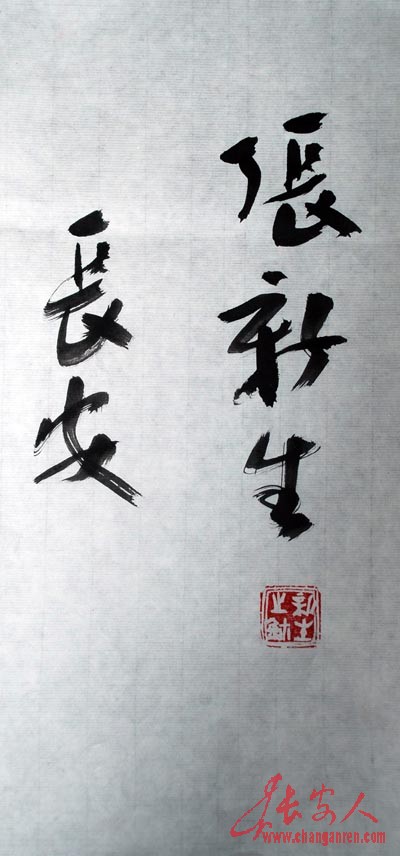 張新生
長安
長安人
www.changanren.com